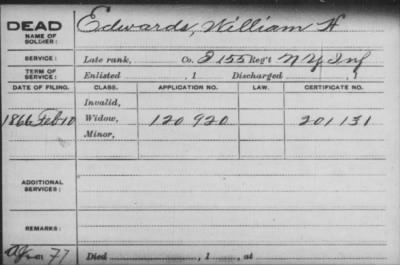 DEAD Edwards, William H
NAME OF SOLDIER:
SERVICE: Late rank, Co. I 155 Reg't N Y Inf
TERM OF SERVICE: Enlisted , 1 Discharged , 1
DATE OF FILING. CLASS. APPLICATION NO. LAW. CERTIFICATE NO.
Invalid,
1866 Feb 10 Widow, 120 920 201 131
Minor,
ADDITIONAL SERVICES:
REMARKS:
77 Died , 1 , at